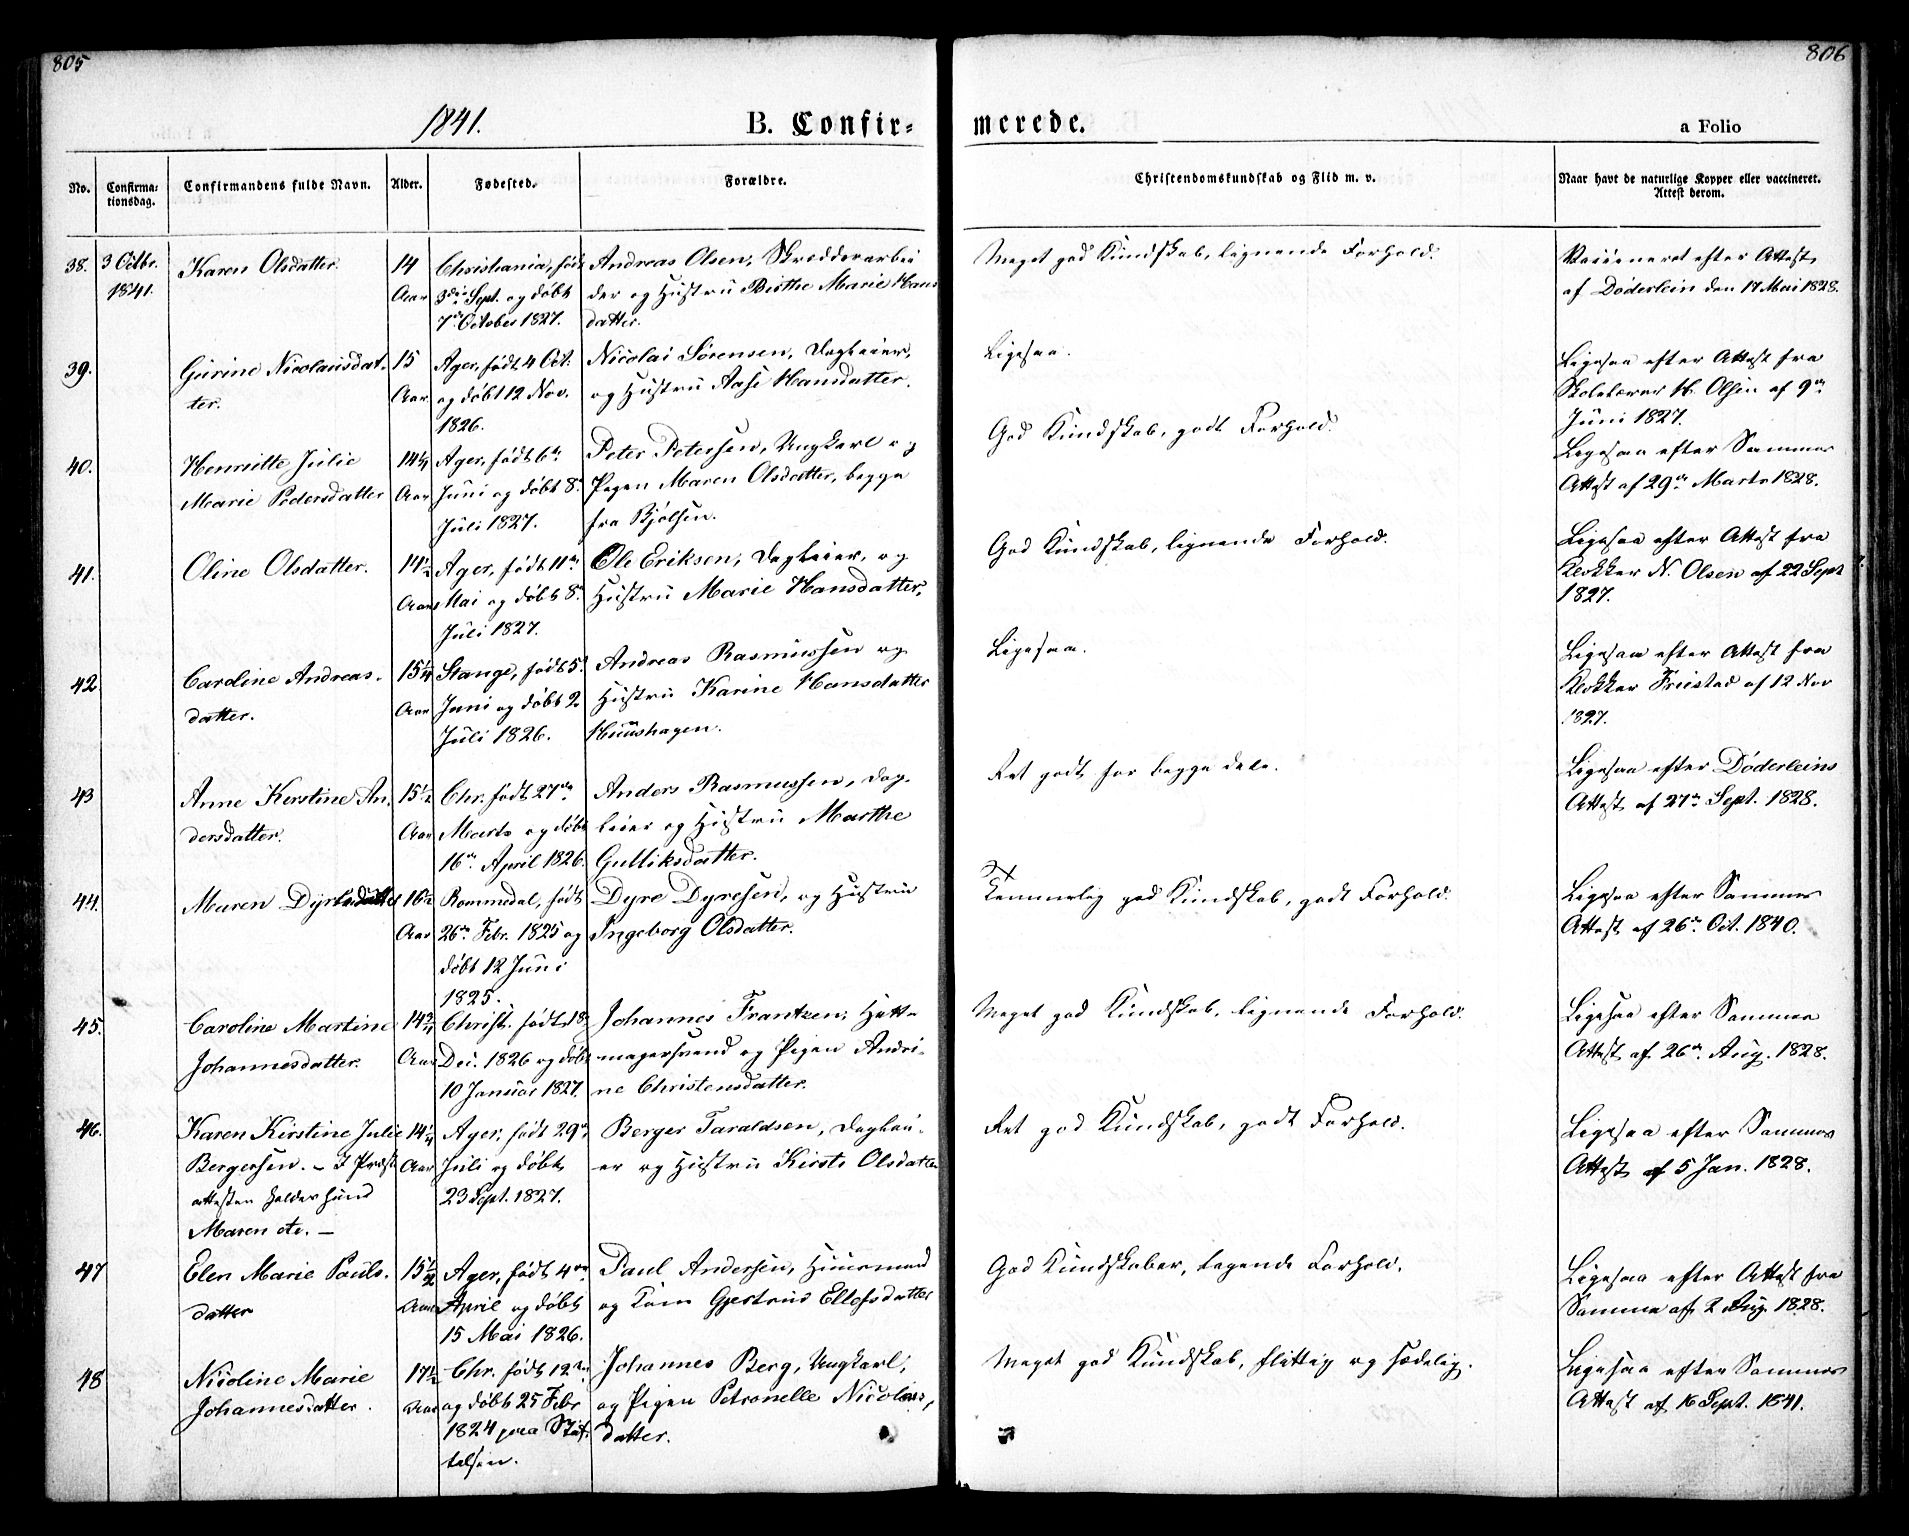 805
806
1841.
B. Confir=
merede.
a Folio
No.
Confirma=
tionsdag.
Confirmandens fulde Navn.
Alder.
Fødested.
Forældre.
Christendomskundskab og Flid m. v.
Naar havt de naturlige Kopper eller vaccineret.
Attest derom.
38.
3 Octbr.
1841.
Karen Olsdatter.
14
Aar
Christiania, født
3die Sept. og døbt
7de October 1827.
Andreas Olsen, Skrædderarbei
der og Hustru Birthe Marie Hans
datter.
Meget god Kundskab, lignende Forhold.
Vaccineret efter Attest
af Døderlein den 17 Mai 1828.
39.
Gurine Nicolausdat-
ter.
15
Aar
Ager, født 4 Oct.
og døbt 12 Nov.
1826.
Nicolai Sørensen, Dagleier,
og Hustru Aase Hansdatter.
Ligesaa.
Ligesaa efter Attest fra
Skolelærer H. Olsen af 9de
Juni 1827.
40.
Henriette Julie
Marie Pedersdatter
14¼
Aar
Ager, født 6te
Juni og døbt 8de
Juli 1827.
Peter Petersen, Ungkarl og
Pigen Maren Olsdatter, begge
fra Bjølsen.
God Kundskab, godt Forhold.
Ligesaa efter Sammes
Attest af 29de Marts 1828.
41.
Oline Olsdatter.
14½
Aar
Ager, født 11te
Mai og døbt 8de
Juli 1827.
Ole Eriksen, Dagleier, og
Hustru Marie Hansdatter,
God Kundskab, lignende Forhold.
Ligesaa efter Attest fra
Klokker N. Olsen af 22 Sept
1827.
42.
Caroline Andreas-
datter.
15¼
Aar
Stange, født 5te
Juni og døbt 2
Juli 1826.
Andreas Rasmussen og
Hustru Karine Hansdatter
Huushagen.
Ligesaa.
Ligesaa efter Attest fra
Klokker Freistad af 12 Nov
1827.
43
Anne Kerstine An-
dersdatter.
15½
Aar
Chr. født 27de
Marts og døbt
16de April 1826.
Anders Rasmussen, Dag-
leier og Hustru Marthe
Gulliksdatter.
Ret godt for begge dele.
Ligesaa efter Døderleins
Attest af 27de Sept. 1828.
44.
Maren Dyresdatter
16½
Aar
Rommedal, født
26de Febr. 1825 og
døbt 12 Juni
1825.
Dyre Dyresen, og Hustru
Ingeborg Olsdatter.
Temmelig god Kundskab, godt Forhold.
Ligesaa efter Sammes
Attest af 26de Oct. 1840.
45.
Caroline Martine
Johannesdatter.
14¾
Aar
Christ. født 18de
Dec. 1826 og døbt
10 Januar 1827.
Johannes Frantzen, Hatte
magersvend og Pigen Andri-
ne Christensdatter.
Meget god Kundskab, lignende Forhold.
Ligesaa efter Sammes
Attest af 26de Aug. 1828.
46.
Karen Kirstine Julie
Bergersen. – I Præste
attesten kaldes hund
Maren etc. –
14¼
Aar
Ager, født 29de
Juli og døbt
23 Sept. 1827.
Berger Taraldsen, Daglei-
er og Hustru Kirsti Olsdatter
Ret god Kundskab, godt Forhold.
Ligesaa efter Sammes
Attest af 5 Jan. 1828.
47
Elen Marie Pauls-
datter
15½
Aar
Ager, født 4de
April og døbt
15 Mai 1826.
Paul Andersen, Huusmand
og Kone Gjertrud Ellefsdatter
God Kundskaber, legende Forhold.
Ligesaa efter Attest fra
Samme af 2 Aug. 1828.
48
Nicoline Marie
Johannesdatter.
17½
Aar
Chr. født 12te
og døbt 25 Febr
1824 paa Stif-
telsen.
Johannes Berg, Ungkarl,
og Pigen Petronelle Nicolaus,
datter.
Meget god Kundskab, flittig og sædelig.
Ligesaa efter Sammes
Attest af 16 Sept. 1841.